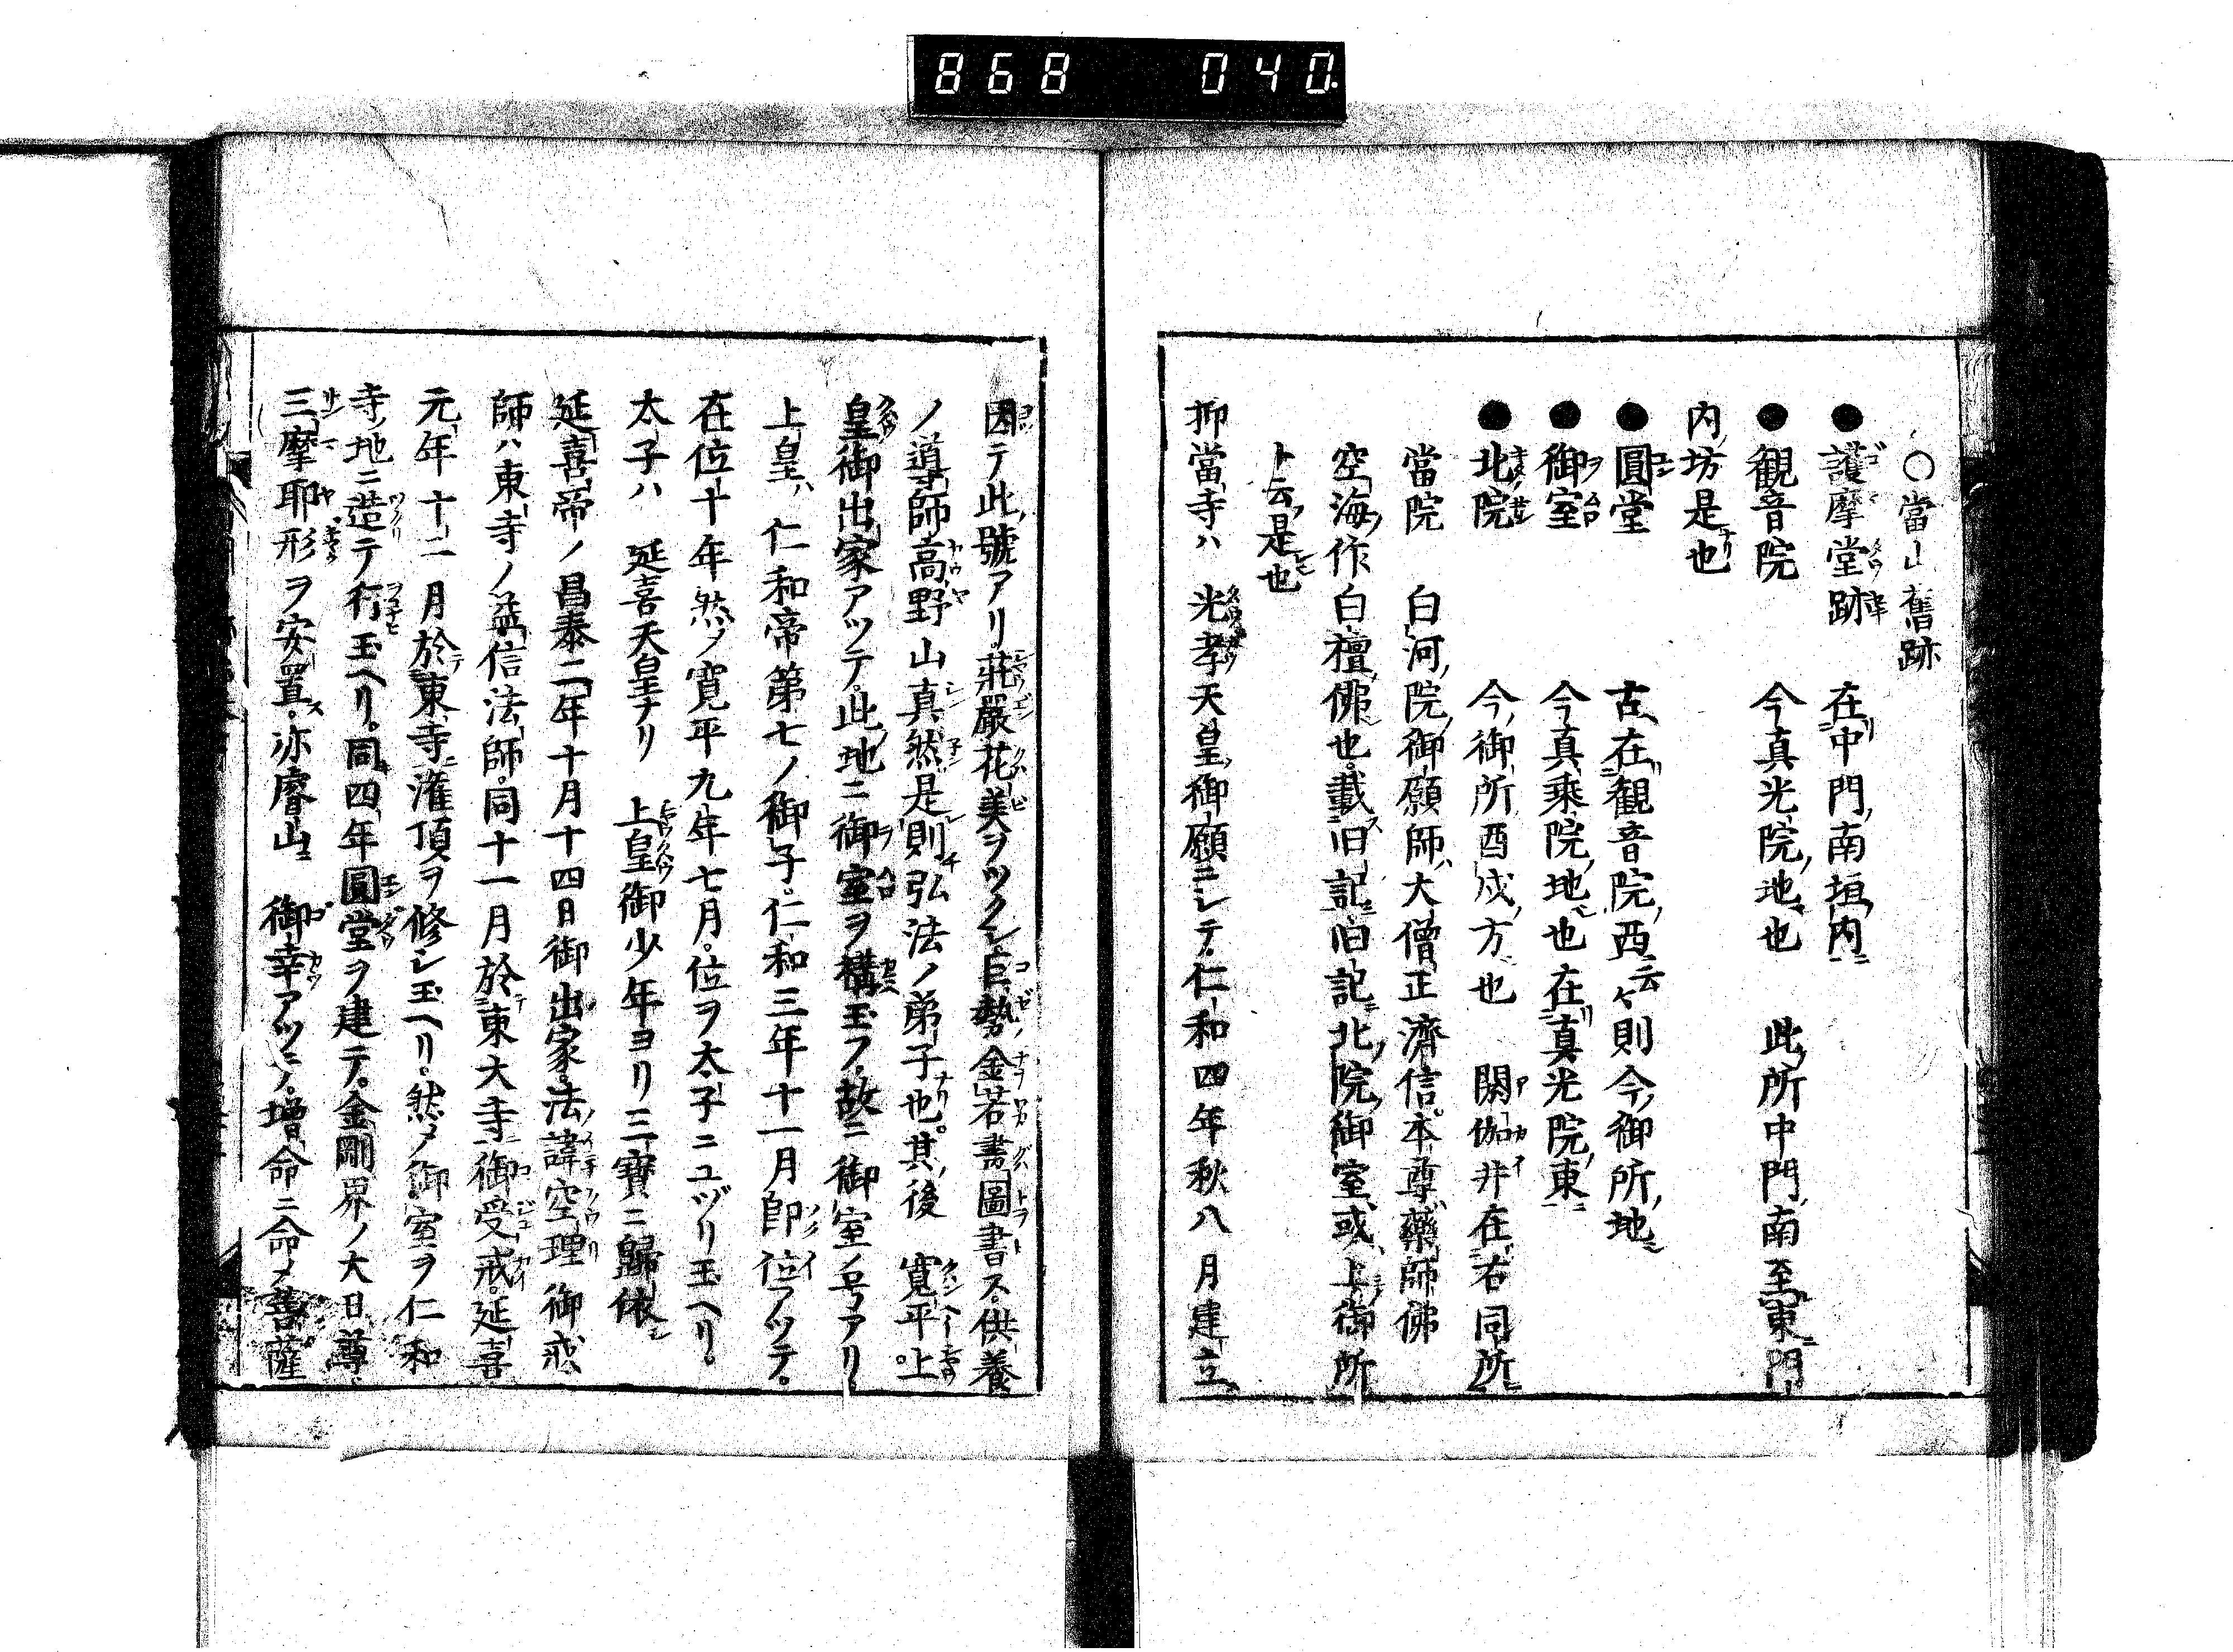 868 040
○當山舊跡
●護摩堂跡 在中門ノ南垣ノ内ニ
●観音院 今真光院ノ地也 此所中門ノ南至東ニ門
内ノ坊是也
●圓堂 古ヘ在観音院ノ西ニ云々則今ノ御所ノ地
●御室 今真乗院ノ地也在真光院ノ東ニ
●北院 今ノ御所酉戌ノ方也 閼伽井在右同所ニ
當院 白河ノ院ノ御願師ハ大僧正濟信本尊ハ藥師佛
空海ノ作白檀佛也載旧記ニ旧記ニ北ノ院ノ御室或ハ上ノ御所
ト云ノ是也
抑當寺ハ 光孝天皇ノ御願ニシテ仁和四年秋八月建立
因テ此ノ號アリ莊嚴花美ヲツクシ巨勢金若書圖書ス供養
ノ導師高野山真然是則弘法ノ弟子也其ノ後 寛平上
皇御出家アツテ此ノ地ニ御室ヲ構玉フ故ニ御室ノ号アリ
上皇ハ仁和帝第七ノ御子仁和三年十一月即位アツテ
在位十年然ノ寛平九年七月位ヲ太子ニユヅリ玉ヘリ
太子ハ 延喜天皇ナリ 上皇御少年ヨリ三寶ニ歸依シ
延喜帝ノ昌泰二年十月十四日御出家法ノ諱空理御戒
師ハ東寺ノ益信法師同十一月於東大寺御受戒延喜
元年十二月於東寺潅頂ヲ修シ玉ヘリ然ノ御室ヲ仁和
寺ノ地ニ造テ行玉ヘリ同四年圓堂ヲ建テ金剛界ノ大日尊
三摩耶形ヲ安置ス亦睿山ニ 御幸アツテ増命ニ命ノ菩薩